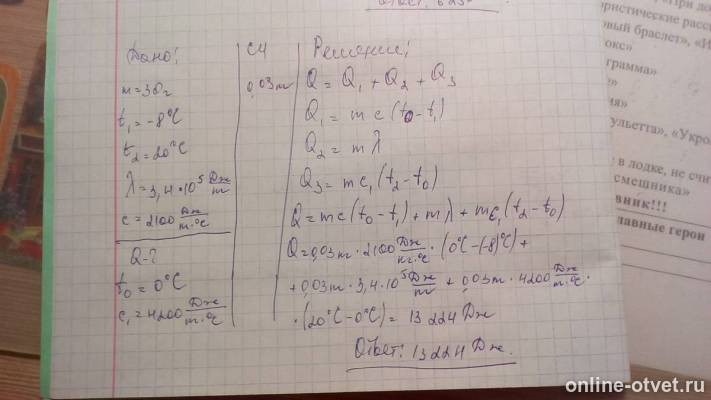 Дано:
m = 30г
t₁ = -8°C
t₂ = 20°C
λ = 3,4·10⁵ Дж/кг
c = 2100 Дж/кг·°C
Q-?
t₀ = 0°C
c₁ = 4200 Дж/кг·°C
СИ
0,03кг
Решение:
Q = Q₁ + Q₂ + Q₃
Q₁ = mc(t₀ - t₁)
Q₂ = mλ
Q₃ = mc₁(t₂ - t₀)
Q = mc(t₀ - t₁) + mλ + mc₁(t₂ - t₀)
Q = 0,03кг · 2100 Дж/кг·°C · (0°C - (-8)°C) +
+ 0,03кг · 3,4·10⁵ Дж/кг + 0,03кг · 4200 Дж/кг·°C ·
· (20°C - 0°C) = 13 224 Дж
Ответ: 13224 Дж.
«При до
ористические расс
овый браслет», «И
окс»
грамма»
е»
ия»
ульетта», «Укро
в лодке, не счит
смешинка»
вник!!!
лавные герои
online-otvet.ru